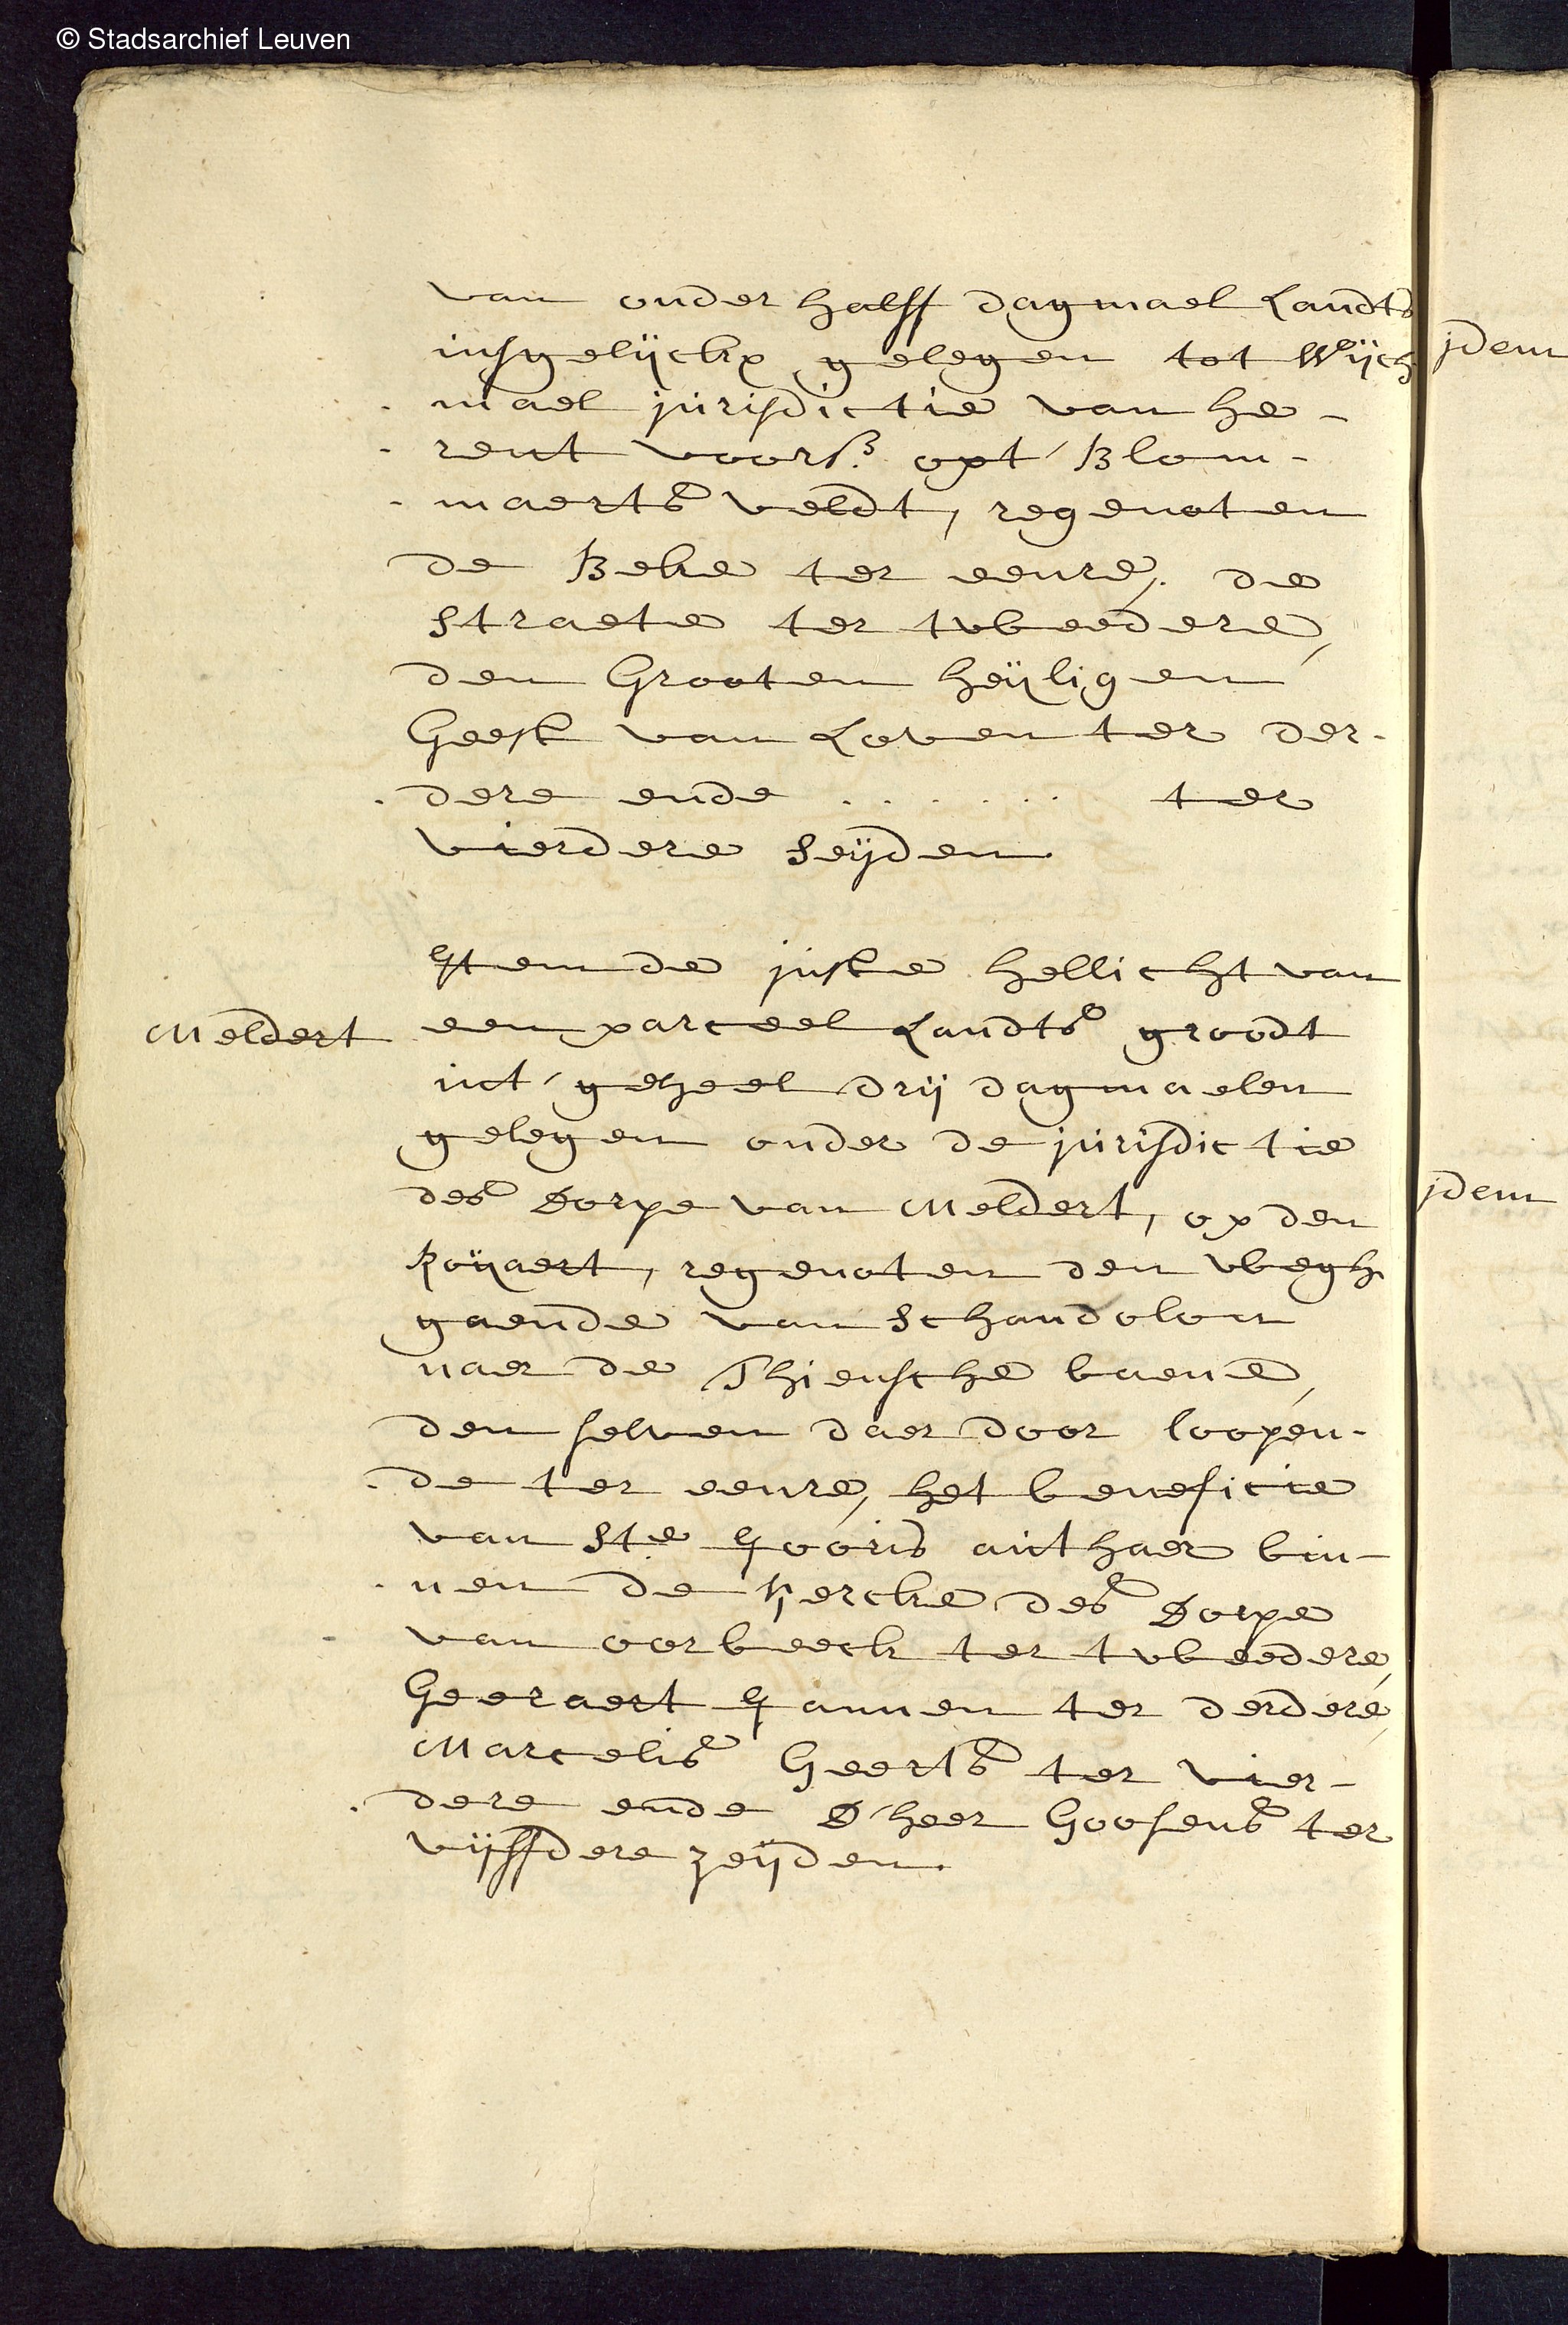 © Stadsarchief Leuven
van onder halff dagmael Landts
insgelijckx gelegen tot Wijch
mael jurisdictie van he-
rent voors. opt Blom-
maerts veldt, regenoten
de Beke ter eenre, de
straete ter tweedere,
den Grooten heijligen
Geest van Loven ter der-
dere ende . . . . . . ter
vierdere seijden.
Item de juste hellicht van
Meldert een parceel Landts groodt
int geheel drij dagmaelen
gelegen onder de jurisdictie
des Dorpe van Meldert, op den
Roijaert, regenoten den wegh
gaende van Schandoloer
naer de Thiensche baene,
den selven daer door loopen-
de ter eenre, het beneficie
van Ste Jooris authaer bin-
nen de kercke des Dorpe
van oorbeeck ter tweedere,
Geeraert Jannen ter derdere,
Marcelis Geerts ter vier-
dere ende D'heer Goosens ter
vijffdere zeijden.
jdem
jdem